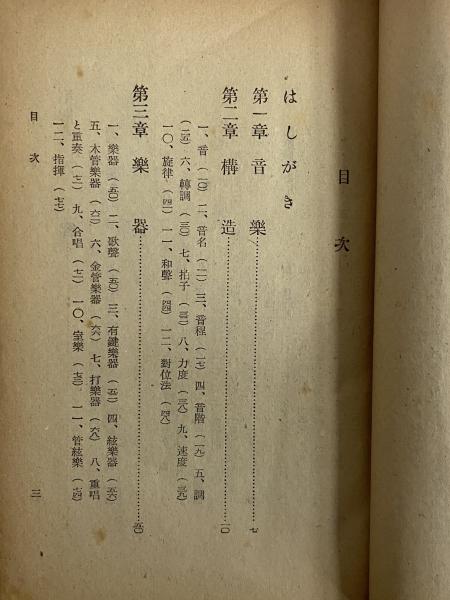 目次
はしがき
第一章 音樂……………………七
第二章 構造……………………一〇
一、音(一〇) 二、音名(一二) 三、音程(一七) 四、音階(一九) 五、調
(二五) 六、轉調(三〇) 七、拍子(三二) 八、力度(三八) 九、速度(三九)
一〇、旋律(四一) 一一、和聲(四四) 一二、對位法(四八)
第三章 樂器……………………五〇
一、樂器(五〇) 二、歌聲(五〇) 三、有鍵樂器(五二) 四、絃樂器(五六)
五、木管樂器(六二) 六、金管樂器(六六) 七、打樂器(六八) 八、重唱
と重奏(七二) 九、合唱(七二) 一〇、室樂(七三) 一一、管絃樂(七四)
一二、指揮(七七)
目次
三